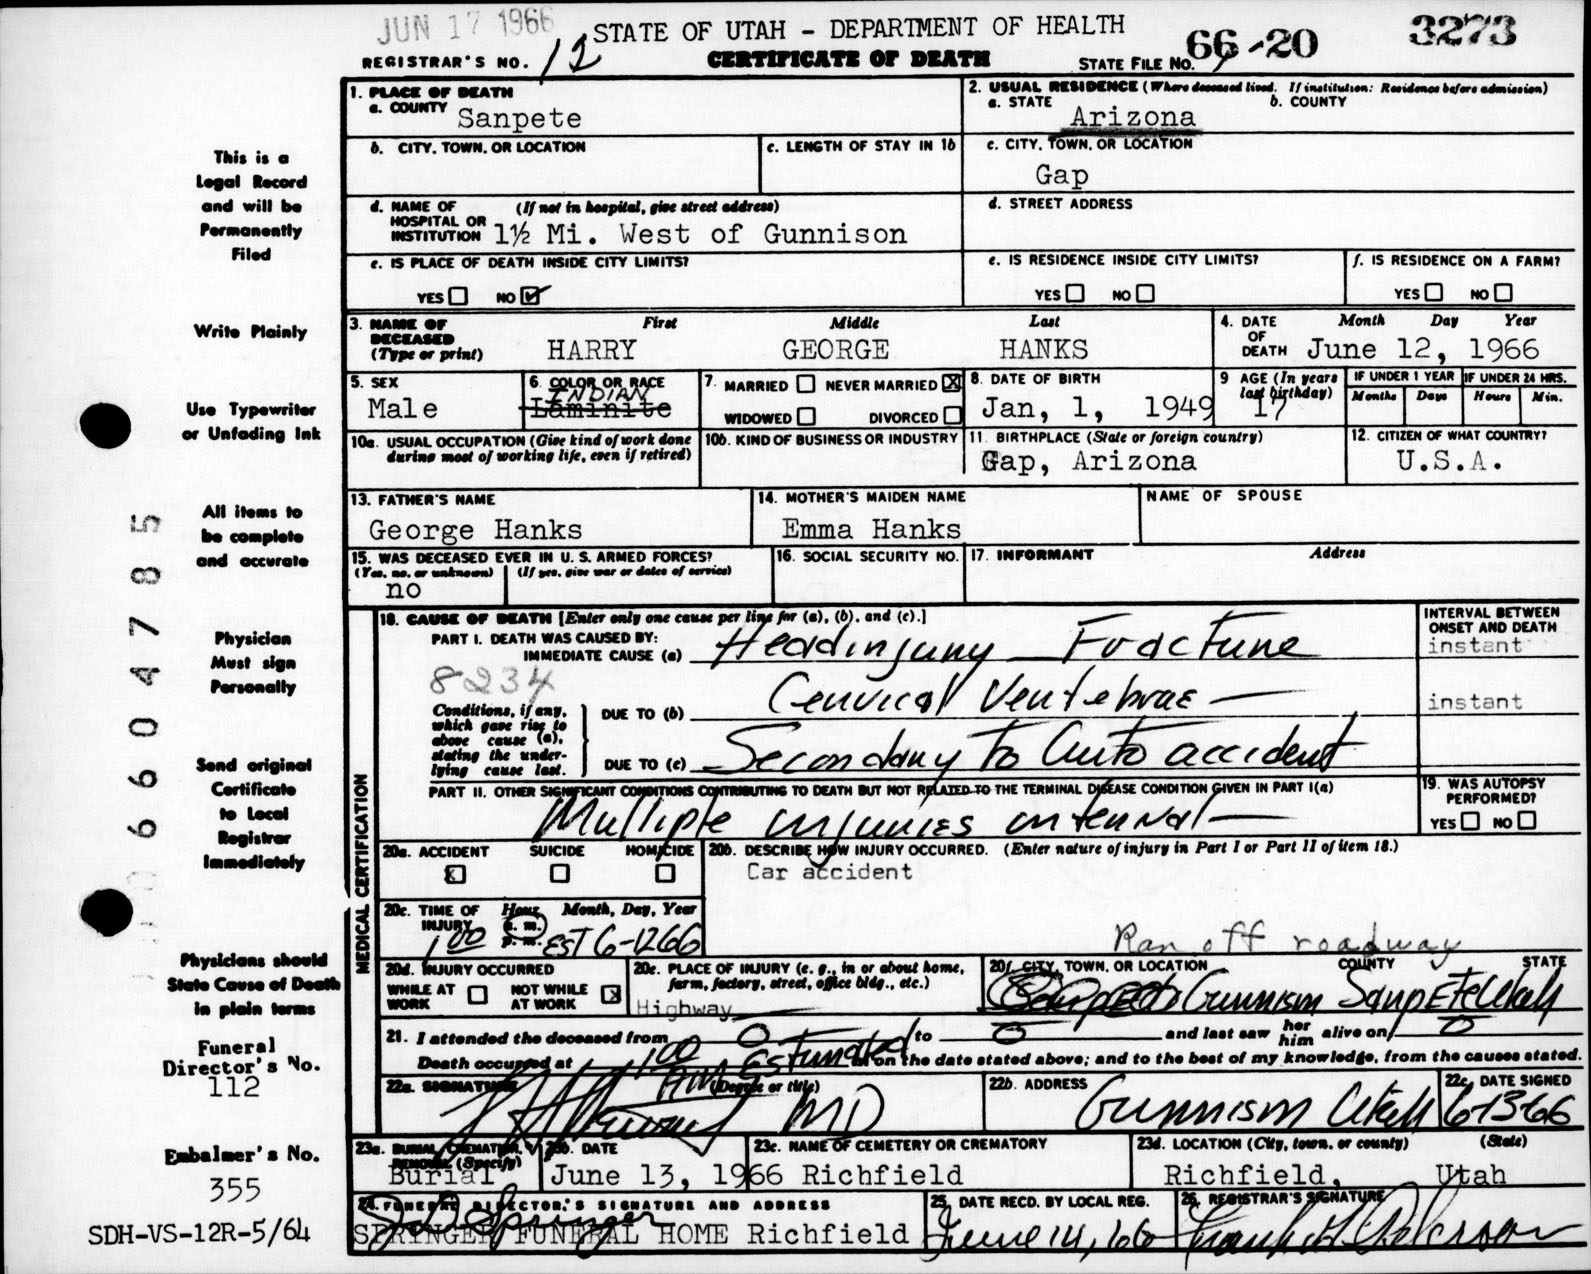 JUN 17 1966
STATE OF UTAH - DEPARTMENT OF HEALTH
3273
REGISTRAR'S NO. 12
CERTIFICATE OF DEATH
STATE FILE NO. 66-20
This is a
Legal Record
and will be
Permanently
Filed
Write Plainly
Use Typewriter
or Unfading Ink
All items to
be complete
and accurate
Physician
Must sign
Personally
Send original
Certificate
to Local
Registrar
Immediately
Physicians should
State Cause of Death
in plain terms
Funeral
Director's No.
112
Embalmer's No.
355
SDH-VS-12R-5/64
6604785
1. PLACE OF DEATH
a. COUNTY Sanpete
2. USUAL RESIDENCE (Where deceased lived. If institution: Residence before admission)
a. STATE Arizona b. COUNTY
b. CITY, TOWN, OR LOCATION
c. LENGTH OF STAY IN 1b
c. CITY, TOWN, OR LOCATION
Gap
d. NAME OF HOSPITAL OR INSTITUTION (If not in hospital, give street address)
1½ Mi. West of Gunnison
d. STREET ADDRESS
e. IS PLACE OF DEATH INSIDE CITY LIMITS?
YES NO
e. IS RESIDENCE INSIDE CITY LIMITS?
YES NO
f. IS RESIDENCE ON A FARM?
YES NO
3. NAME OF DECEASED (Type or print) First Middle Last
HARRY GEORGE HANKS
4. DATE OF DEATH Month Day Year
June 12, 1966
5. SEX
Male
6. COLOR OR RACE
INDIAN
Laminite
7. MARRIED NEVER MARRIED X
WIDOWED DIVORCED
8. DATE OF BIRTH
Jan, 1, 1949
9 AGE (In years last birthday)
17
IF UNDER 1 YEAR
Months Days
IF UNDER 24 HRS.
Hours Min.
10a. USUAL OCCUPATION (Give kind of work done during most of working life, even if retired)
10b. KIND OF BUSINESS OR INDUSTRY
11. BIRTHPLACE (State or foreign country)
Gap, Arizona
12. CITIZEN OF WHAT COUNTRY?
U.S.A.
13. FATHER'S NAME
George Hanks
14. MOTHER'S MAIDEN NAME
Emma Hanks
NAME OF SPOUSE
15. WAS DECEASED EVER IN U. S. ARMED FORCES?
(Yes, no, or unknown) (If yes, give war or dates of service)
no
16. SOCIAL SECURITY NO.
17. INFORMANT Address
MEDICAL CERTIFICATION
18. CAUSE OF DEATH [Enter only one cause per line for (a), (b), and (c).]
INTERVAL BETWEEN ONSET AND DEATH
PART I. DEATH WAS CAUSED BY:
IMMEDIATE CAUSE (a) Head injury Fracture
instant
8234
Conditions, if any, which gave rise to above cause (a), stating the underlying cause last.
DUE TO (b) Cervical Vertebrae
instant
DUE TO (c) Secondary To Auto accident
PART II. OTHER SIGNIFICANT CONDITIONS CONTRIBUTING TO DEATH BUT NOT RELATED TO THE TERMINAL DISEASE CONDITION GIVEN IN PART I(a)
Multiple injuries internal
19. WAS AUTOPSY PERFORMED?
YES NO
20a. ACCIDENT SUICIDE HOMICIDE
X
20b. DESCRIBE HOW INJURY OCCURRED. (Enter nature of injury in Part I or Part II of item 18.)
Car accident
Ran off roadway
20c. TIME OF INJURY Hour Month, Day, Year
a. m.
p. m.
1 00 EST 6-12 66
20d. INJURY OCCURRED
WHILE AT WORK NOT WHILE AT WORK X
20e. PLACE OF INJURY (e. g., in or about home, farm, factory, street, office bldg., etc.)
Highway
20f. CITY, TOWN, OR LOCATION COUNTY STATE
Gunnison Sanpete Utah
21. I attended the deceased from 0 to 0 and last saw her him alive on 0
Death occurred at 1 00 AM Estimated m on the date stated above; and to the best of my knowledge, from the causes stated.
22a. SIGNATURE (Degree or title)
MD
22b. ADDRESS
Gunnison Utah
22c. DATE SIGNED
6-13-66
23a. BURIAL, CREMATION, REMOVAL (Specify)
Burial
23b. DATE
June 13, 1966
23c. NAME OF CEMETERY OR CREMATORY
Richfield
23d. LOCATION (City, town, or county) (State)
Richfield, Utah
24. FUNERAL DIRECTOR'S SIGNATURE AND ADDRESS
Springer
SPRINGER FUNERAL HOME Richfield
25. DATE RECD. BY LOCAL REG.
June 14, 66
26. REGISTRAR'S SIGNATURE